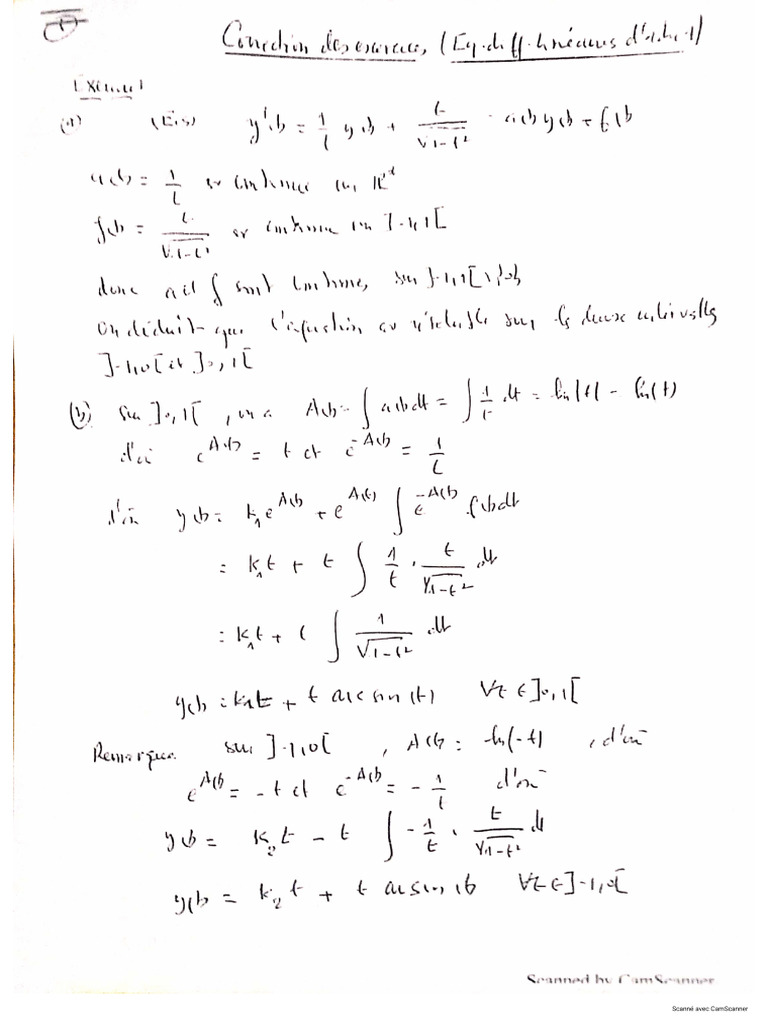 ①
Correction des exercices, (Eq. diff. linéaires d'ordre 1)
Exercice 1
(a) (E1) y'(t) = 1/t y(t) + t/√(1-t²) = a(t) y(t) + f(t)
a(t) = 1/t est continue sur ℝ*
f(t) = t/√(1-t²) est continue sur ]-1,1[
donc a et f sont continues, sur ]-1,1[ \ {0}
on déduit que l'équation est résoluble sur les deux intervalles
]-1,0[ et ]0,1[
(b) sur ]0,1[, on a A(t) = ∫ a(t) dt = ∫ 1/t dt = ln|t| = ln(t)
d'où e^A(t) = t et e^-A(t) = 1/t
d'où y(t) = k₁ e^A(t) + e^A(t) ∫ e^-A(t) f(t) dt
= k₁t + t ∫ 1/t . t/√(1-t²) dt
= k₁t + t ∫ 1/√(1-t²) dt
y(t) = k₁t + t arcsin(t) ∀t ∈ ]0,1[
Remarque sur ]-1,0[, A(t) = ln(-t), d'où
e^A(t) = -t et e^-A(t) = -1/t d'où
y(t) = k₂t - t ∫ -1/t . t/√(1-t²) dt
y(t) = k₂t + t arcsin(t) ∀t ∈ ]-1,0[
Scanned by CamScanner
Scanné avec CamScanner